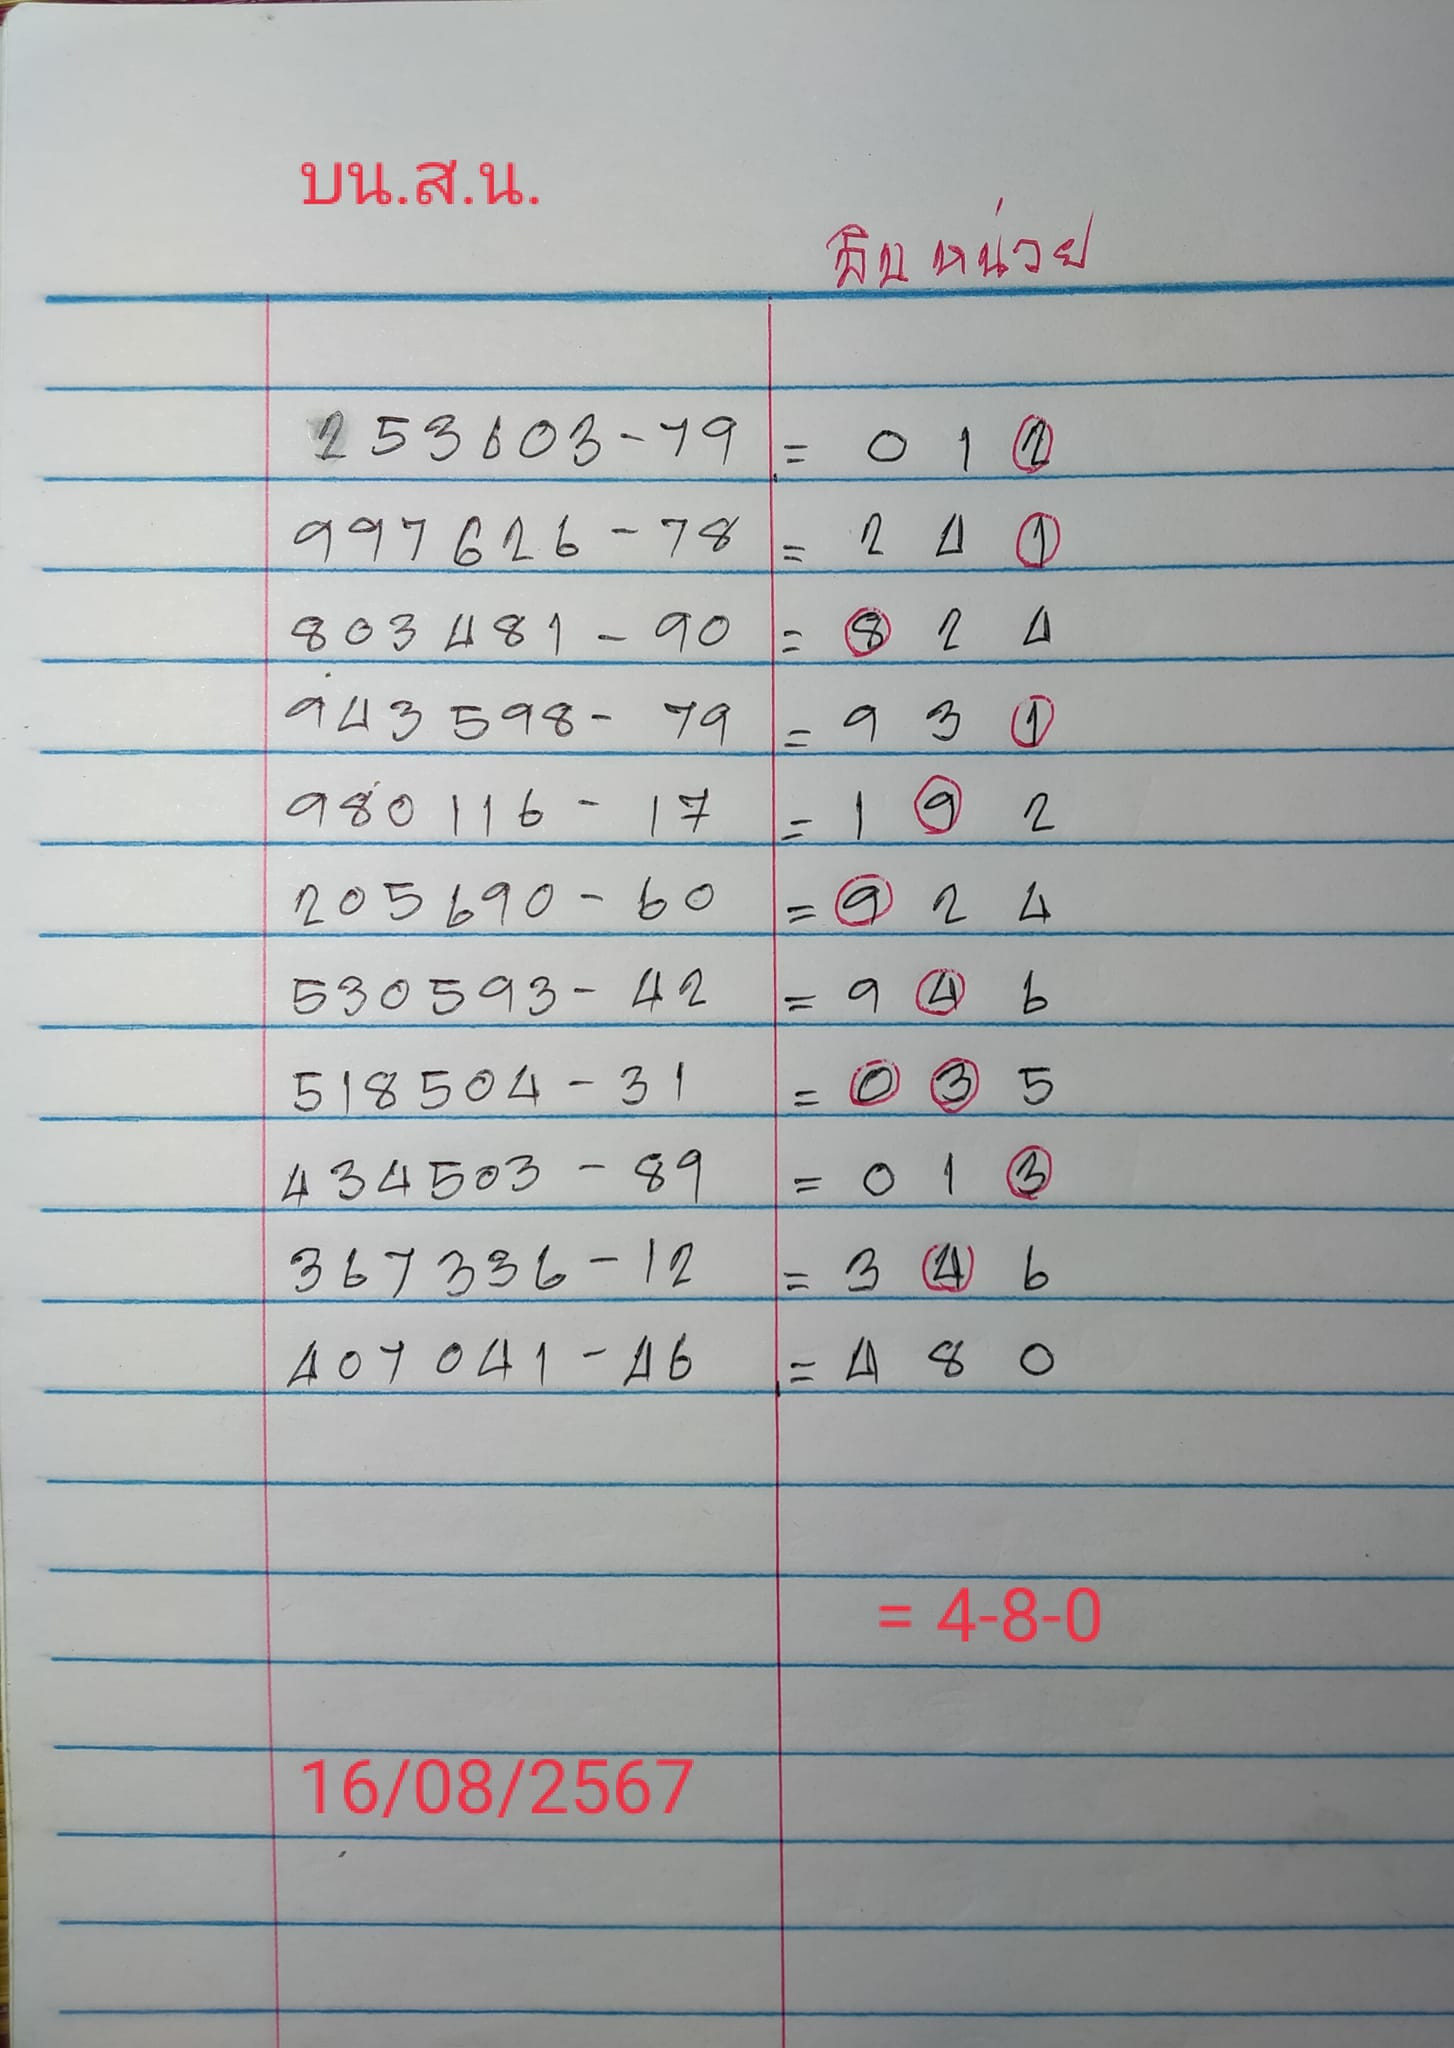 บน.ส.น.
สิบ หน่วย
253603-79 = 0 1 2
997626-78 = 2 4 1
803481-90 = 8 2 4
943598-79 = 9 3 1
980116-17 = 1 9 2
205690-60 = 9 2 4
530593-42 = 9 4 6
518504-31 = 0 3 5
434503-89 = 0 1 3
367336-12 = 3 4 6
407041-46 = 4 8 0
= 4-8-0
16/08/2567